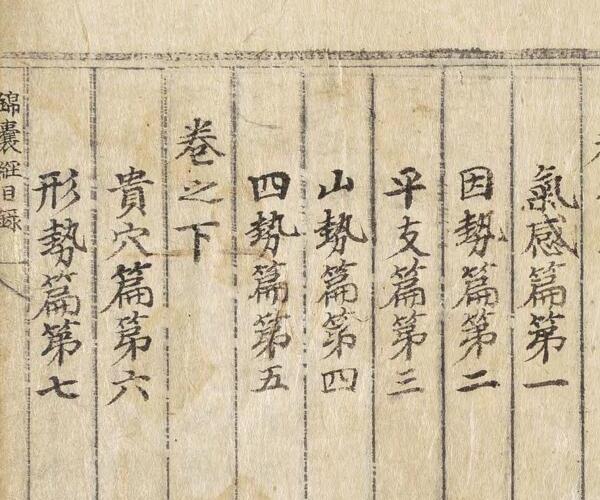 氣感篇第一
因勢篇第二
平支篇第三
山勢篇第四
四勢篇第五
卷之下
貴穴篇第六
形勢篇第七
錦囊經目錄